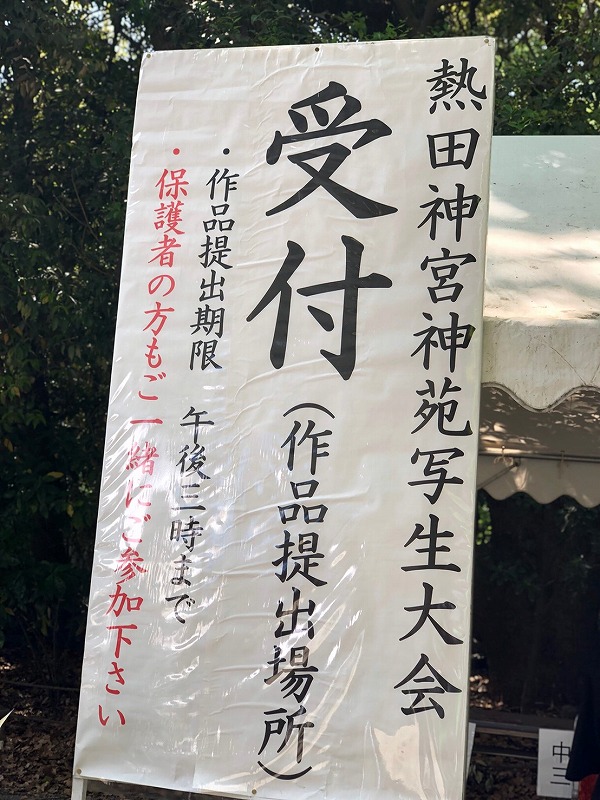 熱田神宮神苑写生大会
受付（作品提出場所）
・作品提出期限　午後三時まで
・保護者の方もご一緒にご参加下さい
中
三